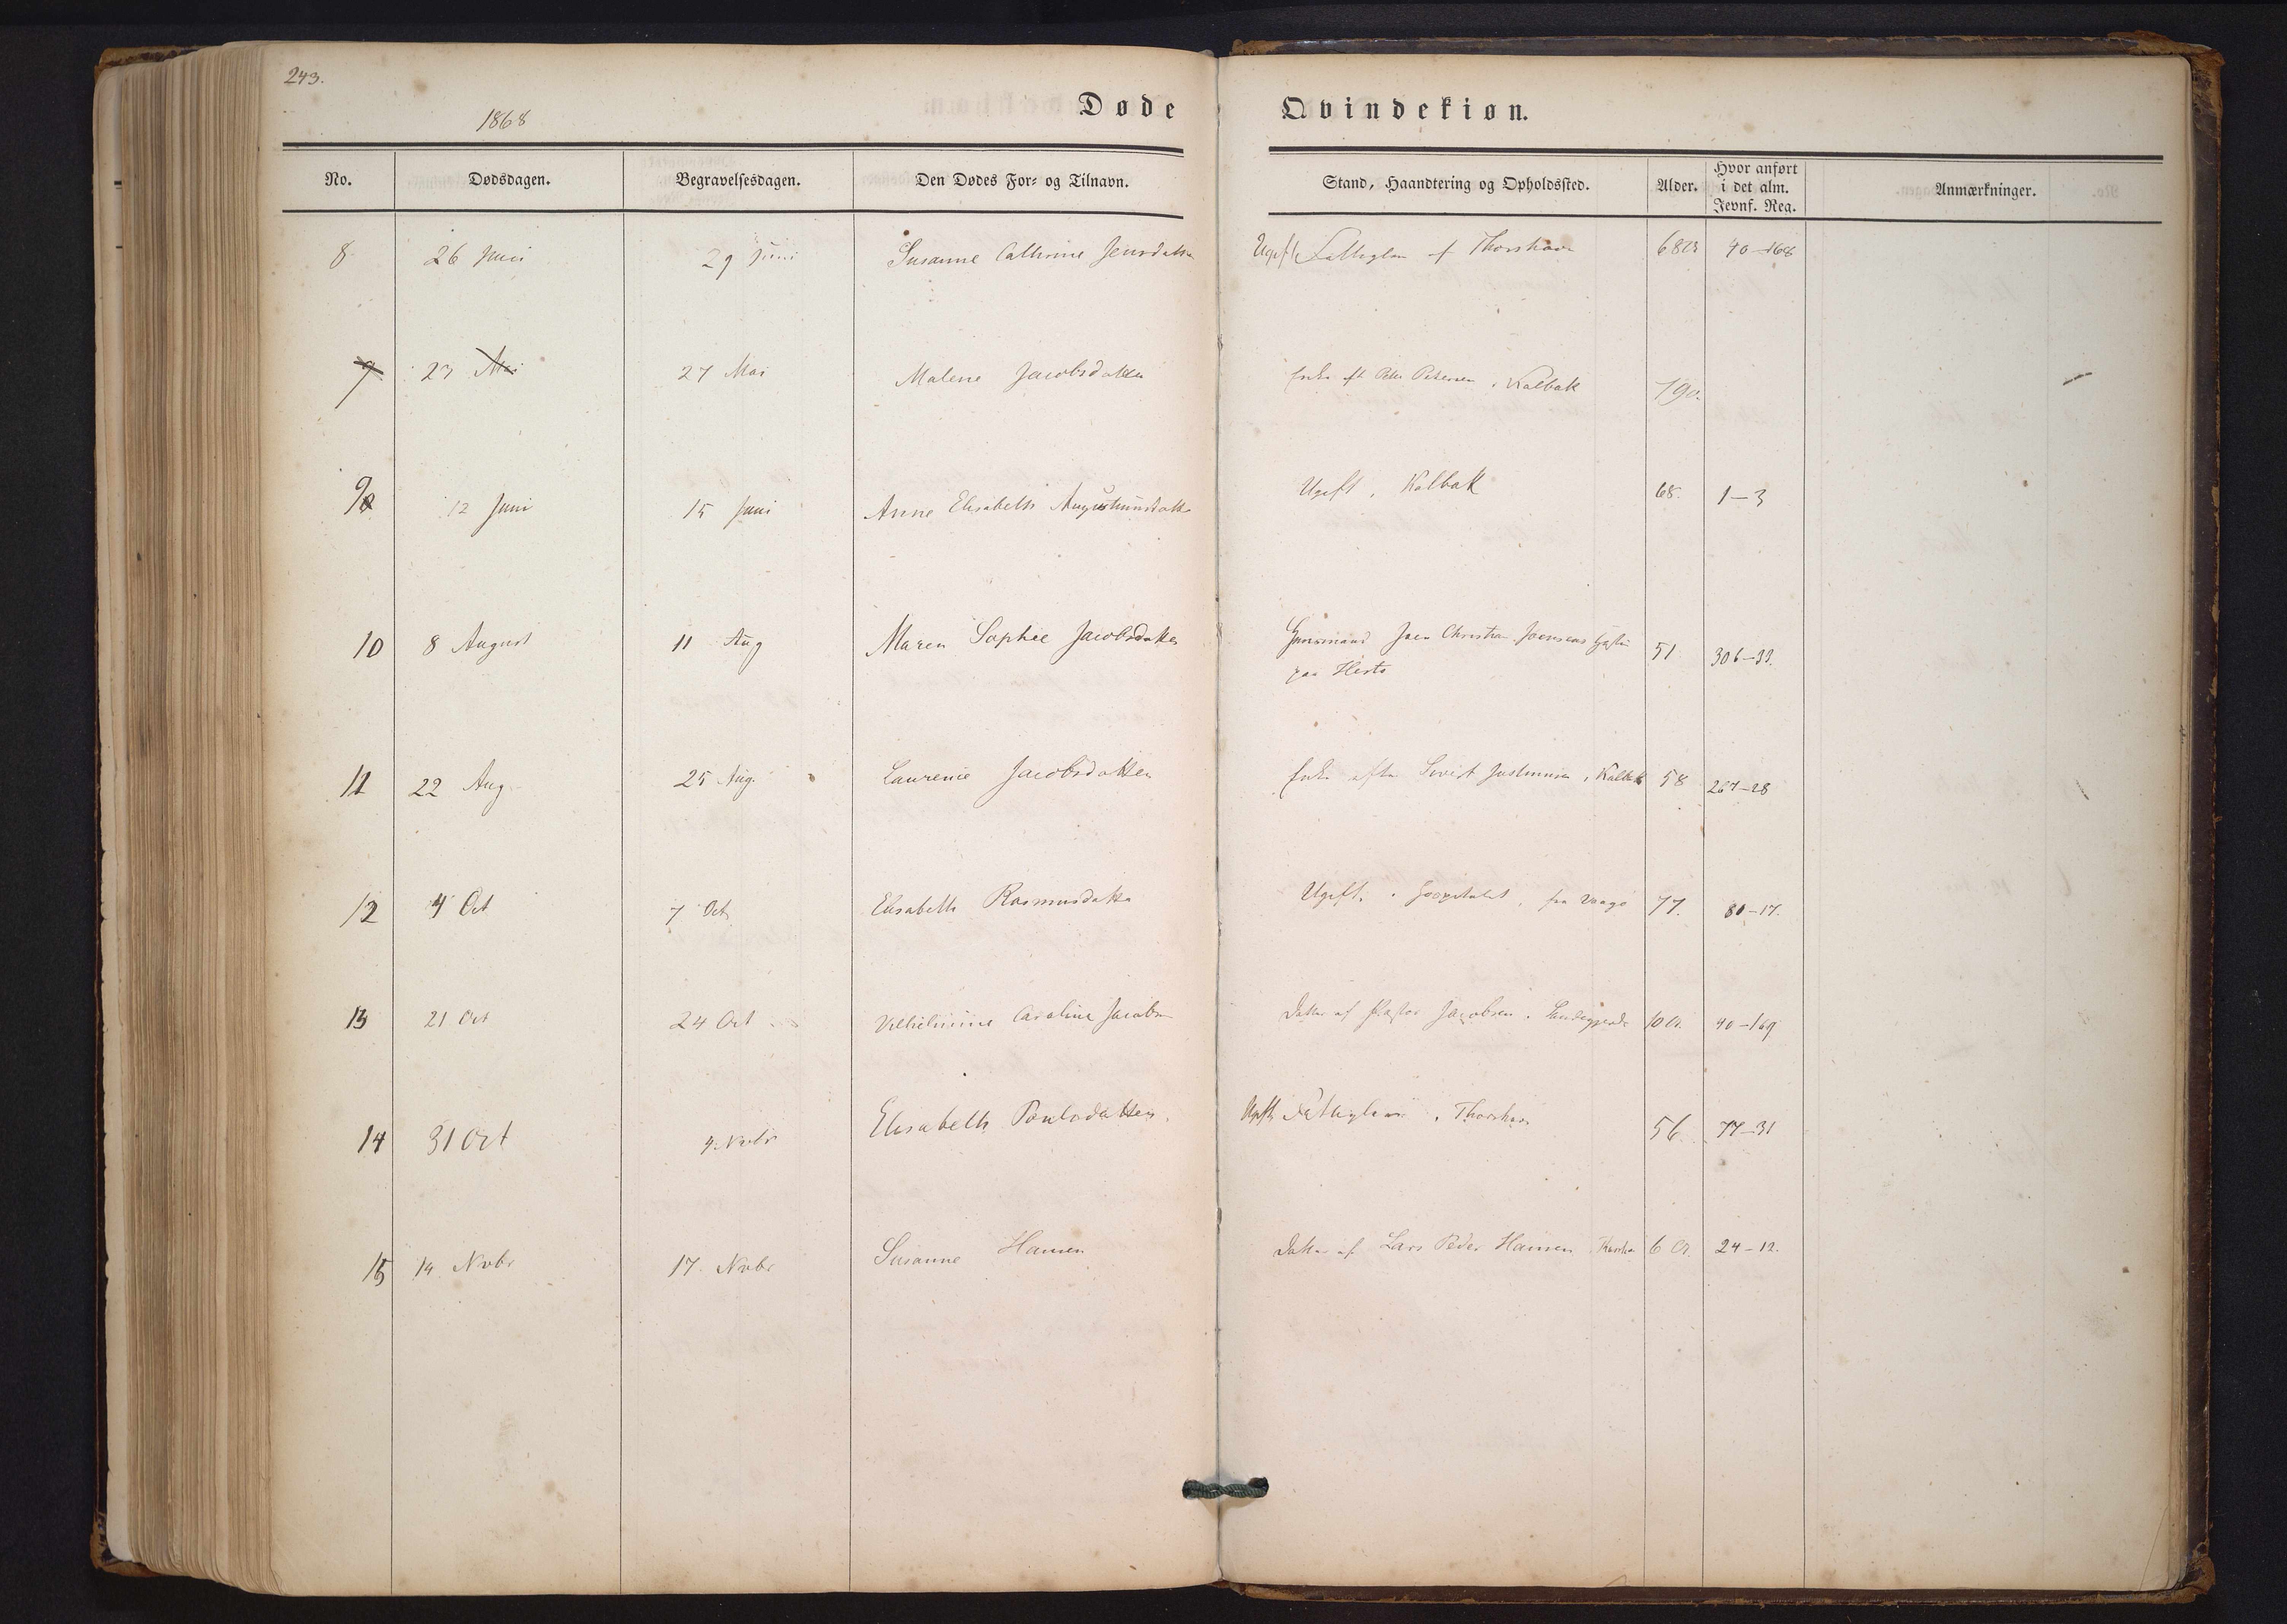 243.
1868
Døde Qvindekiøn.
No. Dødsdagen. Begravelsesdagen. Den Dødes For- og Tilnavn. Stand, Haandtering og Opholdssted. Alder. Hvor anført i det alm. Jevnf. Reg. Anmærkninger.
8 26 Juni 29 Juni Susanne Cathrine Jensdatter Ugift Thorshavn 40-168
9 23 Mai 27 Mai Malene Jacobsdatter Enke eft Peter Petersen, Kalbak
9 12 Juni 15 Juni Anne Elisabeth Ugift, Kalbak 68. 1-3
10 8 August 11 Aug Maren Sophie Jacobsdatter Christian Joensens 51 306-33.
paa Hestø
11 22 Aug 25 Aug. Laurenie Jacobsdatter Enke efter Justinusen, Kalbak 58 267-28
12 4 Oct 7 Oct Elisabeth Rasmusdatter Ugift, Hospitalet, fra Vaagø 77. 80-17.
13 21 Oct 24 Oct Vilhelmine Caroline Jacobsen Datter af Pastor Jacobsen 10 40-169
14 31 Oct 4. Novbr Elisabeth Poulsdatter. Ugift Thorshavn 56 77-31
15 14 Novbr 17. Novbr Susanne Hansen Datter af Lars Peder Hansen 6 24-12.